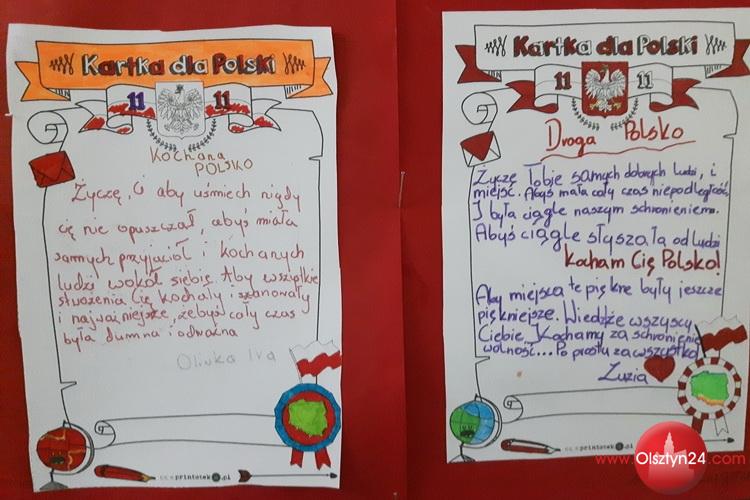 Kartka dla Polski
11 11
Kochana
POLSKO
Życzę Ci aby uśmiech nigdy
cię nie opuszczał, abyś miała
samych przyjaciół i kochanych
ludzi wokół siebie. Aby wszystkie
stworzenia Cię kochały i szanowały
i najważniejsze, żebyś cały czas
była dumna i odważna
Oliwka IVa
printotek.pl
Kartka dla Polski
11 11
Droga Polsko
Życzę Tobie samych dobrych ludzi, i
miejsc. Abyś mała cały czas niepodległość
I była ciągle naszym schronieniem.
Abyś ciągle słyszała od ludzi
Kocham Cię Polsko!
Aby miejsca te piękne były jeszcze
piękniejsze. Wiedzże wszyscy
Ciebie Kochamy za schronienie
wolność... Po prostu za wszystko!
Zuzia
printotek.pl
www.Olsztyn24.com